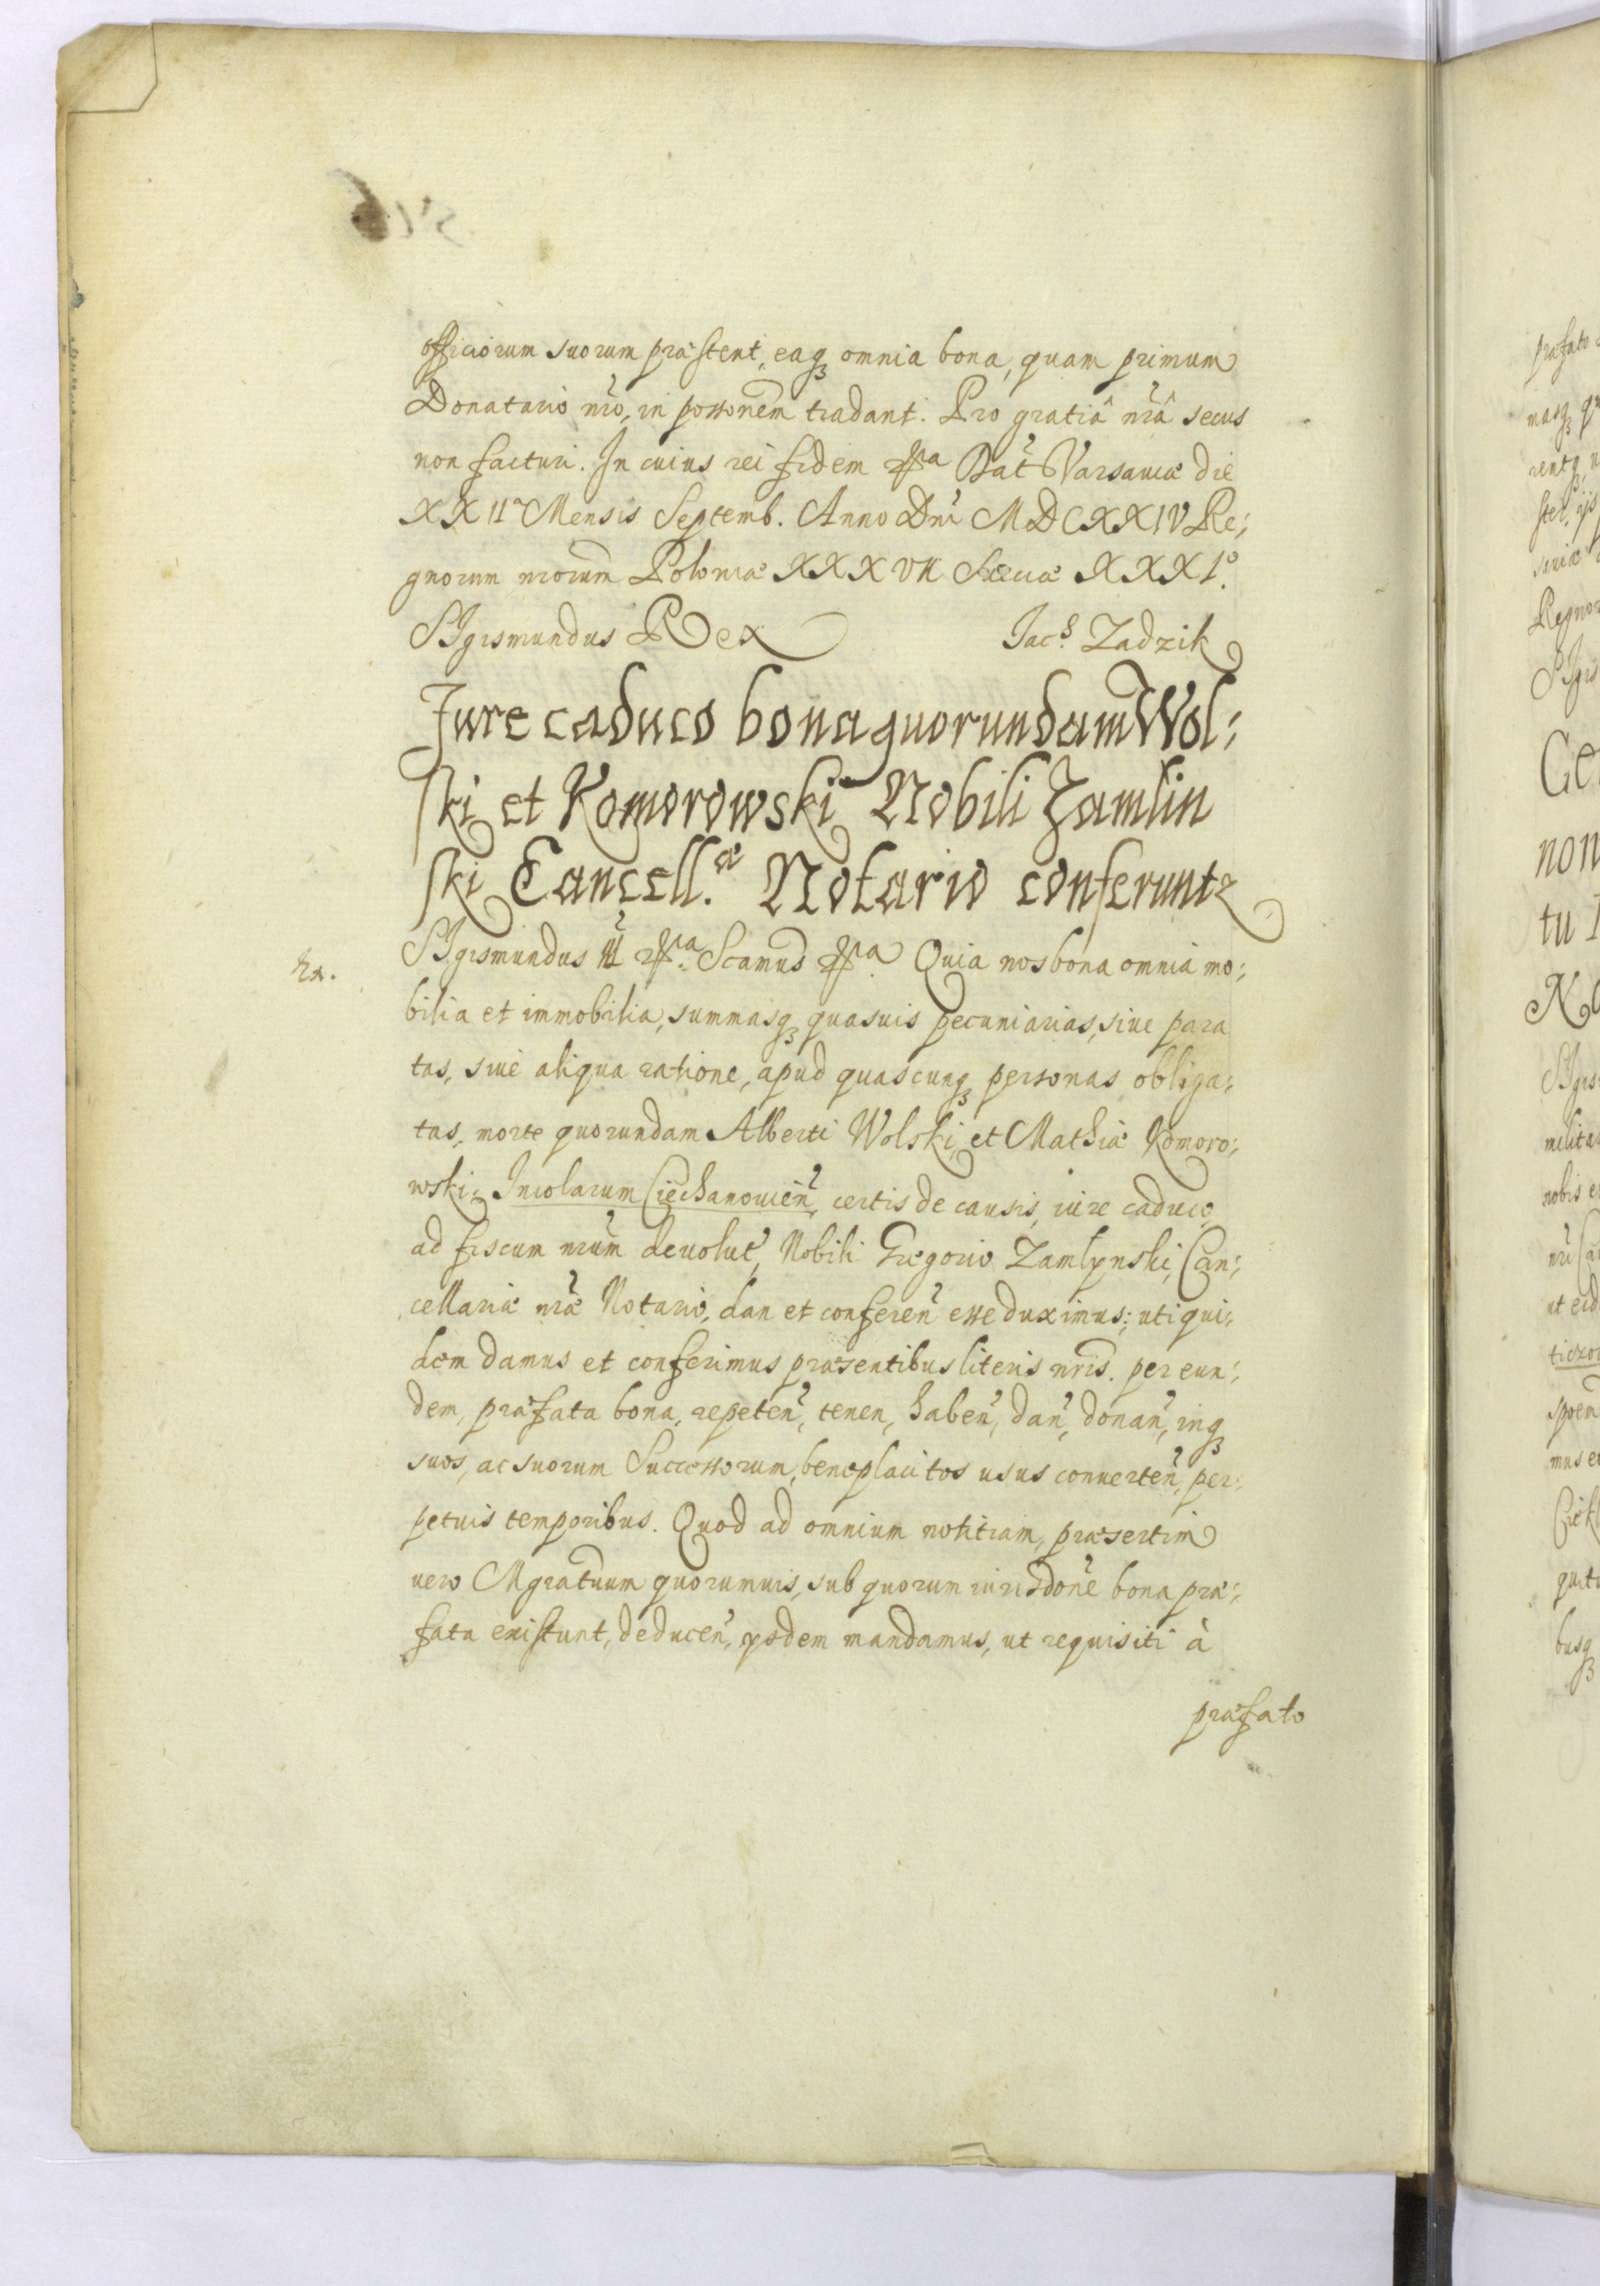 officiorum suorum præstent, eaq₃ omnia bona, quam primum
Donatario nro, in possonem tradant. Pro gratiâ nrâ secus
non facturi. In cuius rei fidem Dat Varsauiæ die
XXII Mensis Septemb. Anno Dni MDCXXIV Re:
gnorum nrorum Poloniæ XXXVII Sueciæ XXXI°.
SIgismundus Rex Jac⁹. Zadzik
Jure caduco bona quorundam Wol:
ski et Komorowski Nobili Zamlin
ski Cancell.æ Notario conferunt
Ex.
SIgismundus III Scamus Quia nos bona omnia mo:
bilia et immobilia, summasq₃ quasuis pecuniarias, siue para
tas, siue aliqua ratione, apud quascunq₃ personas obliga:
tas, morte quorundam Alberti Wolski, et Mathiæ Komoro:
wski, Incolarum Ciechanouien, certis de causis, iure caduco
ad fiscum nrum deuolut, Nobili Gregorio Zamlynski, Can:
cellariæ nræ Notario, dan et conferen esse duximus; uti qui:
dem damus et conferimus præsentibus literis nris. per eun:
dem, præfata bona, repeten, tenen, haben, dan, donan, inq₃
suos, ac suorum Successorum, beneplacitos usus conuerten, per:
petuis temporibus. Quod ad omnium notitiam, præsertim
uero Mgratuum quorumuis, sub quorum iurisdone bona præ:
fata existunt, deducen, ysdem mandamus, ut requisiti à
præfato